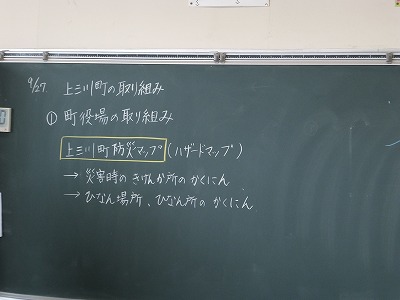 9/27 上三川町の取り組み
① 町役場の取り組み
上三川町防災マップ(ハザードマップ)
→ 災害時のきけんか所のかくにん
→ ひなん場所、ひなん所のかくにん